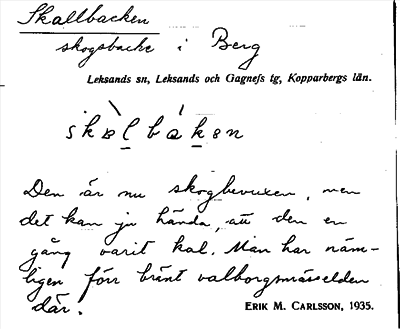 Skallbacken
skogsbacke i Berg
Leksands sn, Leksands och Gagnefs tg, Kopparbergs län.
skalbakən
Den är nu skogbevuxen, men
det kan ju hända, att den en
gång varit kal. Man har näm-
ligen förr bränt valborgsmässelden
där.
ERIK M. CARLSSON, 1935.